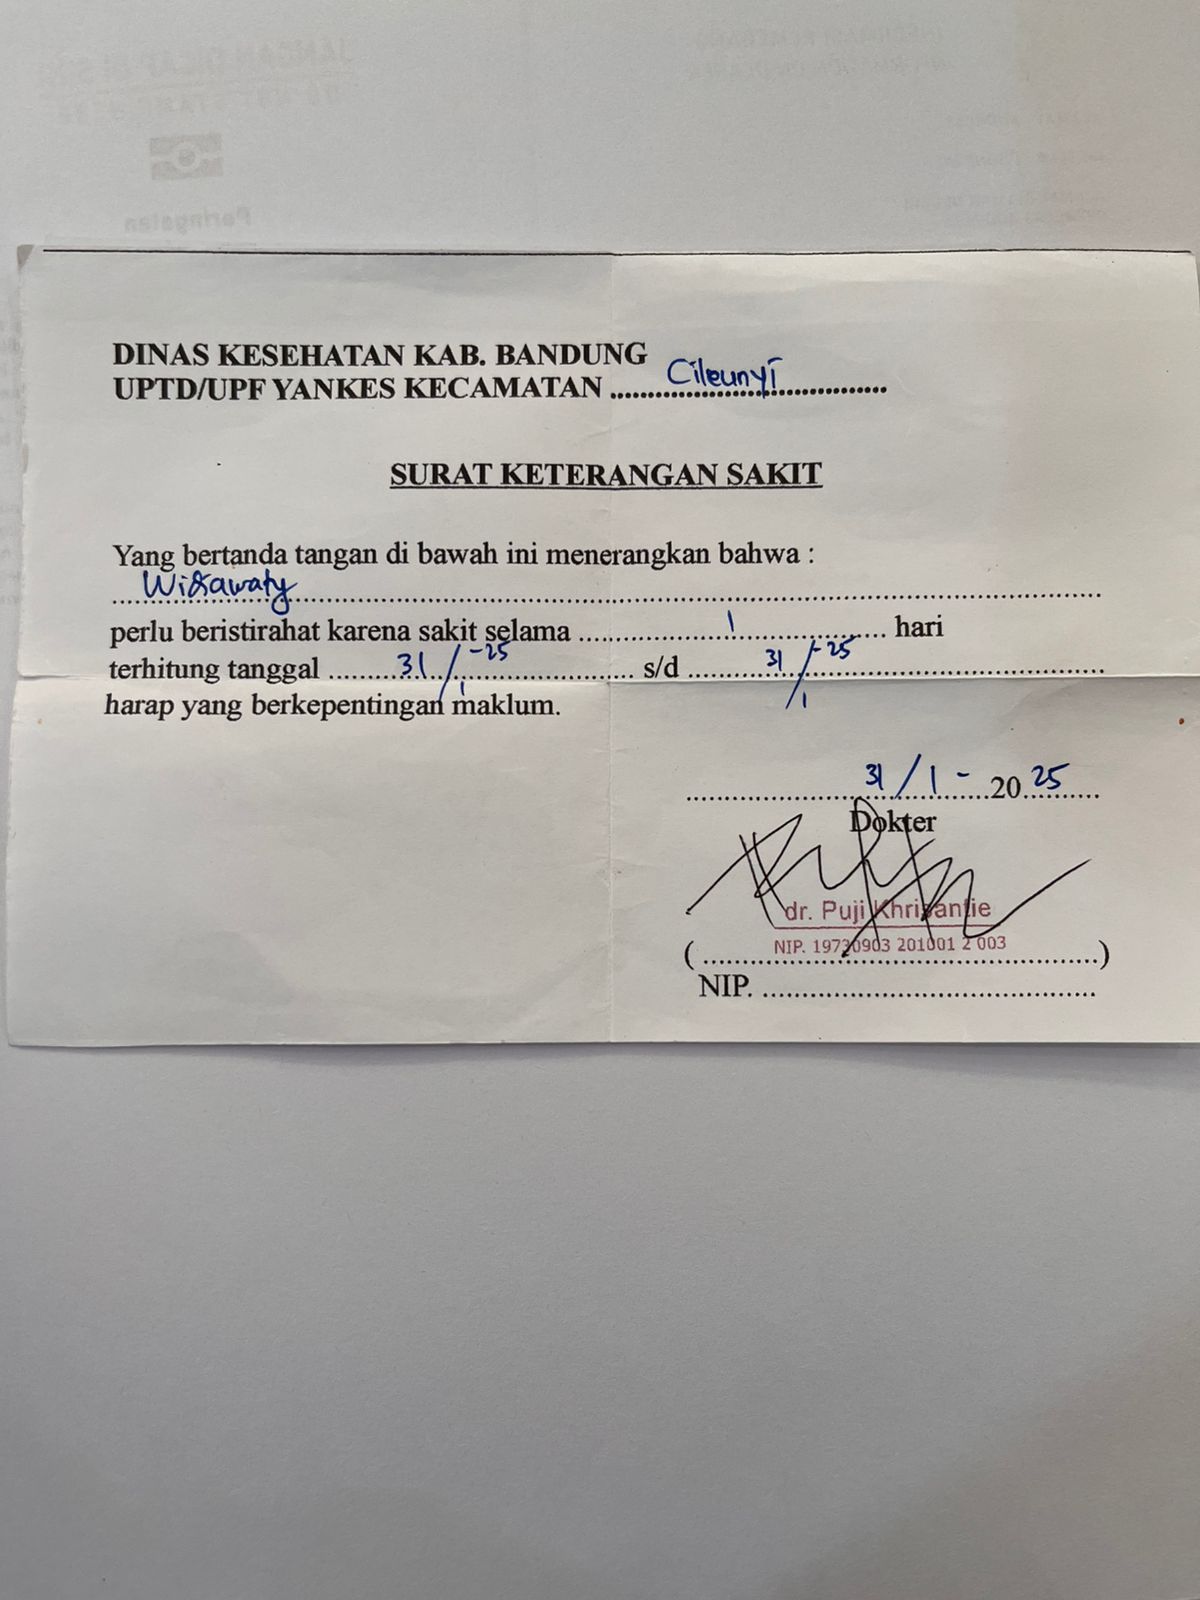 DINAS KESEHATAN KAB. BANDUNG
UPTD/UPF YANKES KECAMATAN Cileunyi
SURAT KETERANGAN SAKIT
Yang bertanda tangan di bawah ini menerangkan bahwa :
perlu beristirahat karena sakit selama 1 hari
terhitung tanggal 31/1-25 s/d 31/1-25
harap yang berkepentingan maklum.
31/1- 2025
Dokter
dr. Puji Khrisantie
(NIP. 19730903 201001 2 003)
NIP.
Peringatan